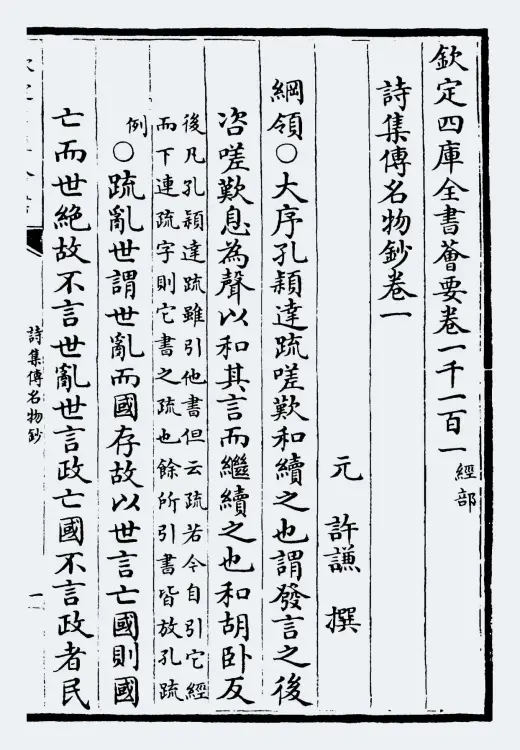 欽定四庫全書薈要卷一千一百一
經部
詩集傳名物鈔卷一
元　許謙　撰
綱領○大序孔穎達疏嗟歎和續之也謂發言之後
咨嗟歎息為聲以和其言而繼續之也和胡卧反
後凡孔穎達疏雖引他書但云疏若今自引它經
而下連疏字則它書之疏也餘所引書皆放孔疏
例
○疏亂世謂世亂而國存故以世言亡國則國
亡而世絶故不言世亂世言政亡國不言政者民
詩集傳名物鈔
一